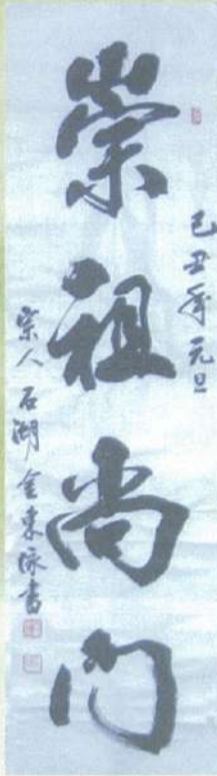 己丑年元旦
崇祖尚门
宗人石湖金東泳書